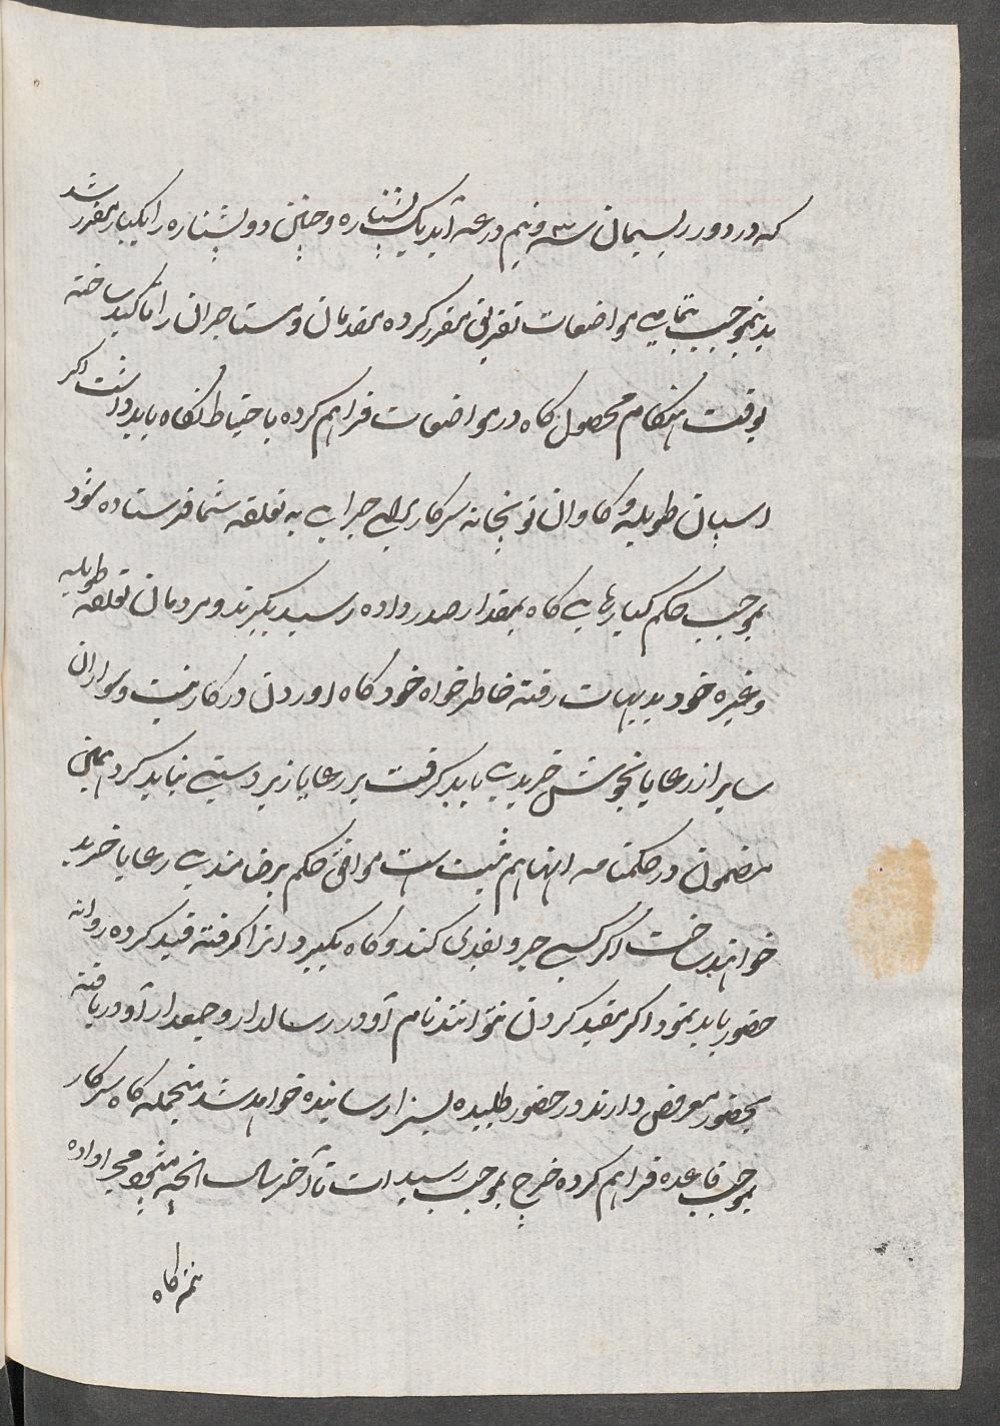 که در دور ریسمان سه و نیم درعه آید یک پشتاره و چنین دو پشتاره را یکبار مقرر شد
بدینموجب بتمامی مواضعات تفریق مقرر کرده مقدمان و مستاجران را تاکید ساخته
بوقت هنگام محصول کاه در مواضعات فراهم کرده باحتیاط نگاه باید داشت اکر
اسپان طویله و کاوان توپخانه سرکار برای چرایی به تعلقه شما فرستاده شود
بموجب حکم کبارهای کاه بمقدار صدر داده رسید بکیرند و مردمان تعلقه طویله
وغیره خود بدیهات رفته خاطر خواه خود کاه اوردن درکار نیست و سواران
سایر از رعایا بخوشی خریدی باید کرفت بر رعایا زبردستی نباید کرد همین
مضمون در حکمنامه انها هم ثبت است موافق حکم برضامندی رعایا خرید
خواهند ساخت اکر کسی جبر و تعدی کند و کاه بکیرد انرا کرفته قید کرده روانه
حضور باید نمود اکر مقید کردن نتوانند نام او و رسالدار و جمعدار او دریافته
بحضور معروض دارند در حضور طلبیده بسزا رسانیده خواهد شد منجمله کاه سرکار
بموجب قاعده فراهم کرده خرج بموجب رسیدات تا آخر سال انچه میشود مجرا داده